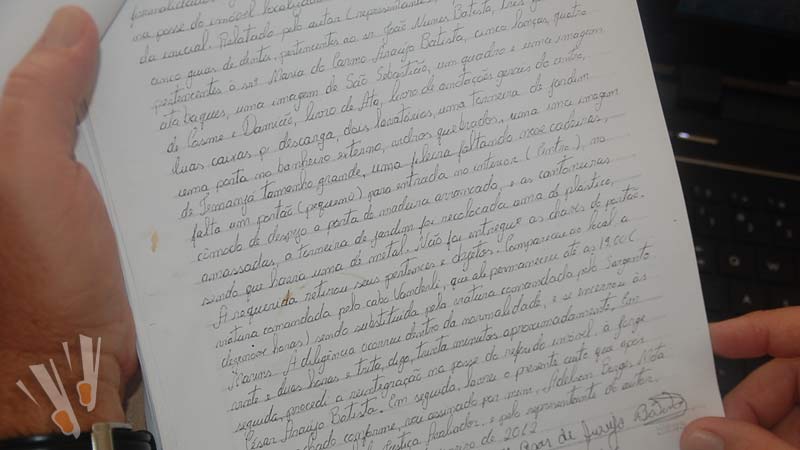 formalidades
na posse do imóvel localizado
da inicial. Relatado pelo autor (representante
cinco guias de dentes, pertencentes ao sr. João Nunes Batista, três
pertencentes à srª Maria do Carmo Araújo Batista, cinco lanças, quatro
atabaques, uma imagem de São Sebastião, um quadro e uma imagem
de Cosme e Damião, livro de Ata, livro de anotações gerais do centro,
duas caixas p/ descarga, dois lavatórios, uma torneira de jardim
uma porta no banheiro externo, vidros quebrados, uma imagem
de Iemanjá tamanho grande, uma fileira faltando nove cadeiras,
falta um portão (pequeno) para entrada no interior (Centro), no
cômodo de despejo a porta de madeira arrancada, e as cantoneiras
amassadas, a torneira de jardim foi recolocada uma de plástico,
sendo que havia uma de metal. Não foi entregue as chaves do portão.
A requerida retirou seus pertences e objetos. Compareceu ao local a
viatura comandada pelo cabo Vanderli, que ali permaneceu até as 19:00 (
dezenove horas) sendo substituída pela viatura comandada pelo Sargento
Marins. A diligência ocorreu dentro da normalidade, e se encerrou às
vinte e duas horas e trita, digo, trinta minutos aproximadamente. Em
seguida, procedi a reintegração na posse do referido imóvel à Jorge
César Araújo Batista. Em seguida, lavrei o presente auto que após
achado conforme, vai assinado por mim, Adelson Borges Mota
Justiça Avaliador, e pelo representante do autor.
de 2012
César de Araújo Batista